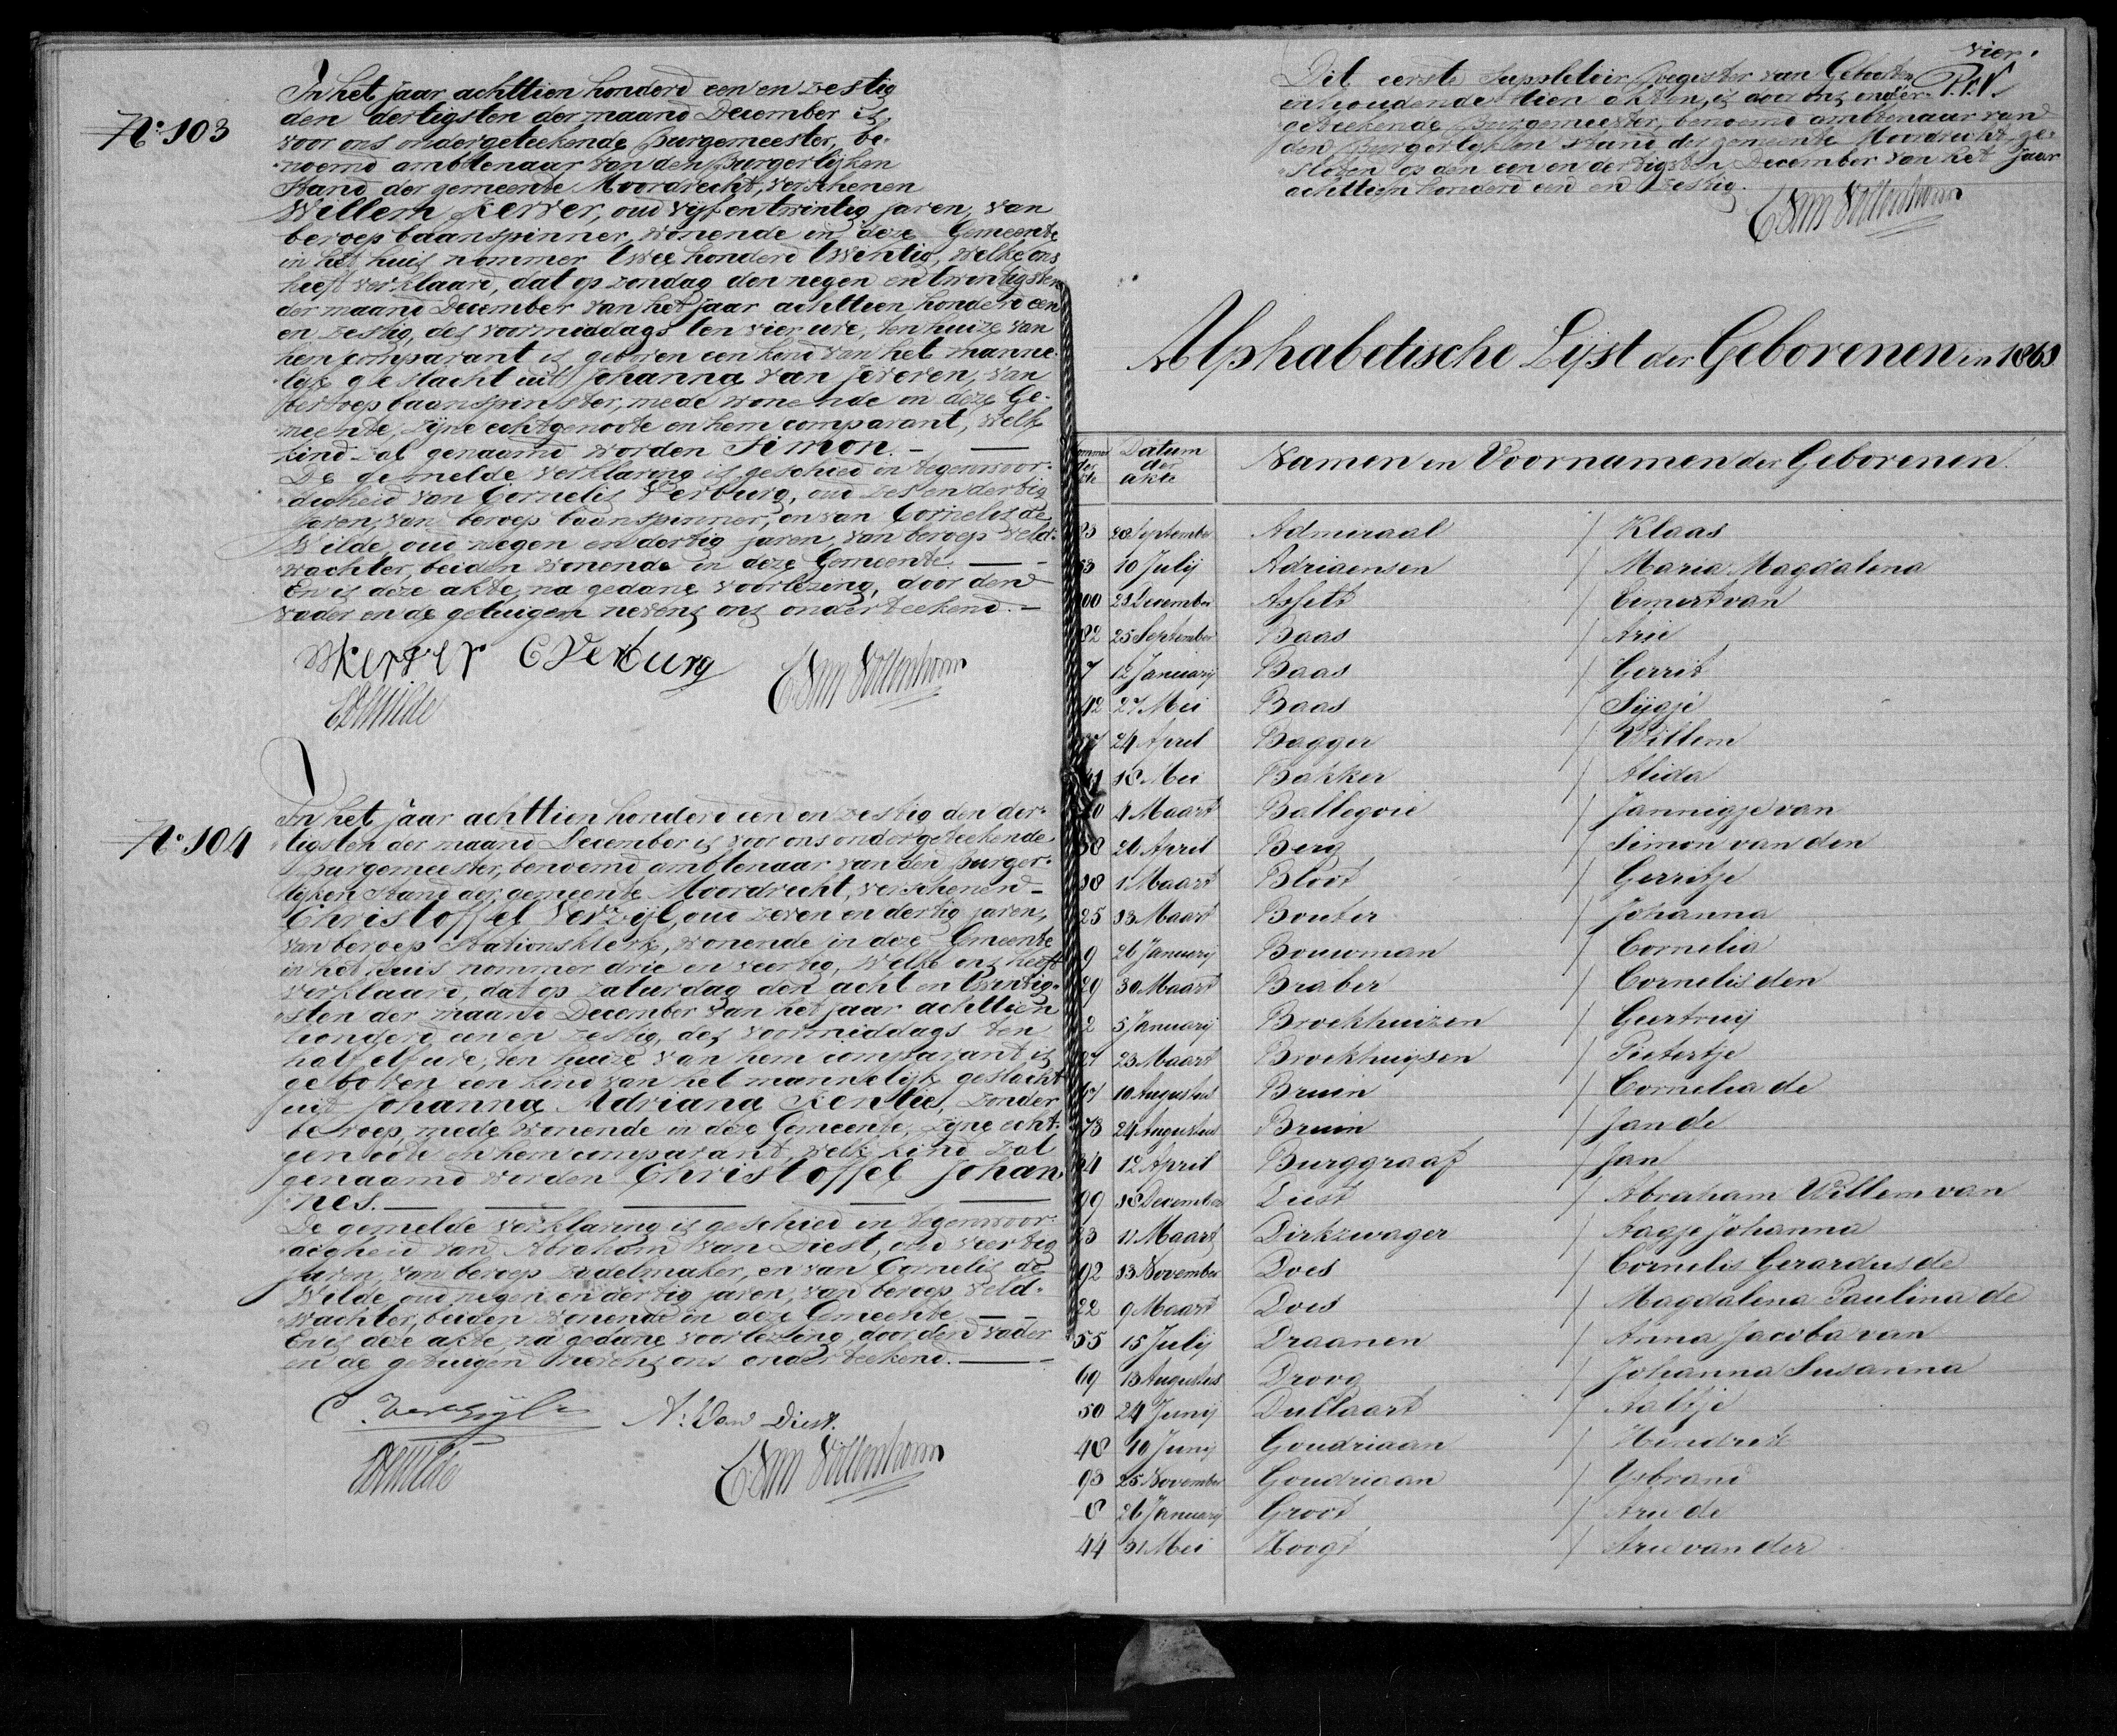 No. 103
In het jaar achttien honderd een en zestig
den dertigsten der maand December is,
voor ons ondergeteekende Burgemeester, be-
noemd ambtenaar van den Burgerlijken
Stand der gemeente Moordrecht, verschenen
Willem Kerver, oud vijf en twintig jaren, van
beroep baanspinner, wonende in deze Gemeente
in het huis nommer twee honderd twintig, welke ons
heeft verklaard, dat op zondag den negen en twintigsten
der maand December van het jaar achttien honderd een
en zestig, des voormiddags ten vier ure, ten huize van
hem comparant is geboren een kind van het manne-
lijk geslacht uit Johanna van Jeveren, van
beroep baanspinster, mede wonende in deze Ge-
meente, zijne echtgenoote en hem comparant, welk
kind zal genaamd worden Simon. —
De gemelde verklaring is geschied in tegenwoor-
digheid van Cornelis Verburg, oud zes en dertig
jaren, van beroep baanspinner, en van Cornelis de
Wilde, oud negen en dertig jaren, van beroep veld-
wachter, beiden wonende in deze Gemeente. —
En is deze akte, na gedane voorlezing, door den
vader en de getuigen nevens ons onderteekend. —
WKerver C Verburg
CDWilde
No. 104
In het jaar achttien honderd een en zestig den der-
tigsten der maand December is voor ons ondergeteekende
Burgemeester, benoemd ambtenaar van den Burger-
lijken Stand der gemeente Moordrecht, verschenen —
Christoffel Verzijl, oud zeven en dertig jaren,
van beroep Stationsklerk, wonende in deze Gemeente
in het huis nommer drie en veertig, welke ons heeft
verklaard, dat op zaturdag den acht en twintig-
sten der maand December van het jaar achttien
honderd een en zestig, des voormiddags ten
half elf ure, ten huize van hem comparant is
geboren een kind van het mannelijk geslacht
uit Johanna Adriana Kentie, zonder
beroep, mede wonende in deze Gemeente, zijne echt-
genoote en hem comparant, welk kind zal
genaamd worden Christoffel Johan-
nes. —
De gemelde verklaring is geschied in tegenwoor-
digheid van Abraham van Diest, oud veertig
jaren, van beroep zadelmaker, en van Cornelis de
Wilde, oud negen en dertig jaren, van beroep veld-
wachter, beiden wonende in deze Gemeente. —
En is deze akte, na gedane voorlezing, door den vader
en de getuigen nevens ons onderteekend. —
C. Verzijl A: Van Diest.
CDWilde
vier.
Dit eerste Suppletoir Register van Geboorten
inhoudende tien akten, is door ons onder-
geteekende Burgemeester, benoemd ambtenaar van
den Burgerlijken Stand der gemeente Moordrecht ge-
sloten op den een en dertigsten December van het jaar
achttien honderd een en zestig.
Alphabetische Lijst der Geborenen in 1861
Nommer der akte Datum der akte Namen en Voornamen der Geborenen.
28 September Admiraal / Klaas
10 Julij Adriaensen / Maria Magdalena
00 23 December Asselt / Eimert van
82 25 September Baas / Arie
7 12 Januarij Baas / Gerrit
42 27 Mei Baas / Sijgje
24 April Bagger / Willem
41 18 Mei Bakker / Alida
4 Maart Ballegoie / Jannigje van
38 26 April Berg / Simon van den
18 1 Maart Bloot / Gerretje
25 13 Maart Bouter / Johanna
9 26 Januarij Bouwman / Cornelia
29 30 Maart Braber / Cornelis den
2 5 Januarij Broekhuizen / Geertruij
27 23 Maart Broekhuijsen / Pietertje
10 Augustus Bruin / Cornelia de
73 24 Augustus Bruin / Jan de
34 12 April Burggraaf / Jan
99 18 December Diest / Abraham Willem van
23 11 Maart Dirkzwager / Aagje Johanna
92 13 November Does / Cornelis Gerardus de
22 9 Maart Does / Magdalena Paulina de
55 15 Julij Draanen / Anna Jacoba van
69 13 Augustus Droog / Johanna Susanna
50 24 Junij Dullaart / Aaltje
48 10 Junij Goudriaan / Hendrik
93 25 November Goudriaan / Ysbrand
8 26 Januarij Groot / Arie de
44 31 Mei Hoogt / Arie van der